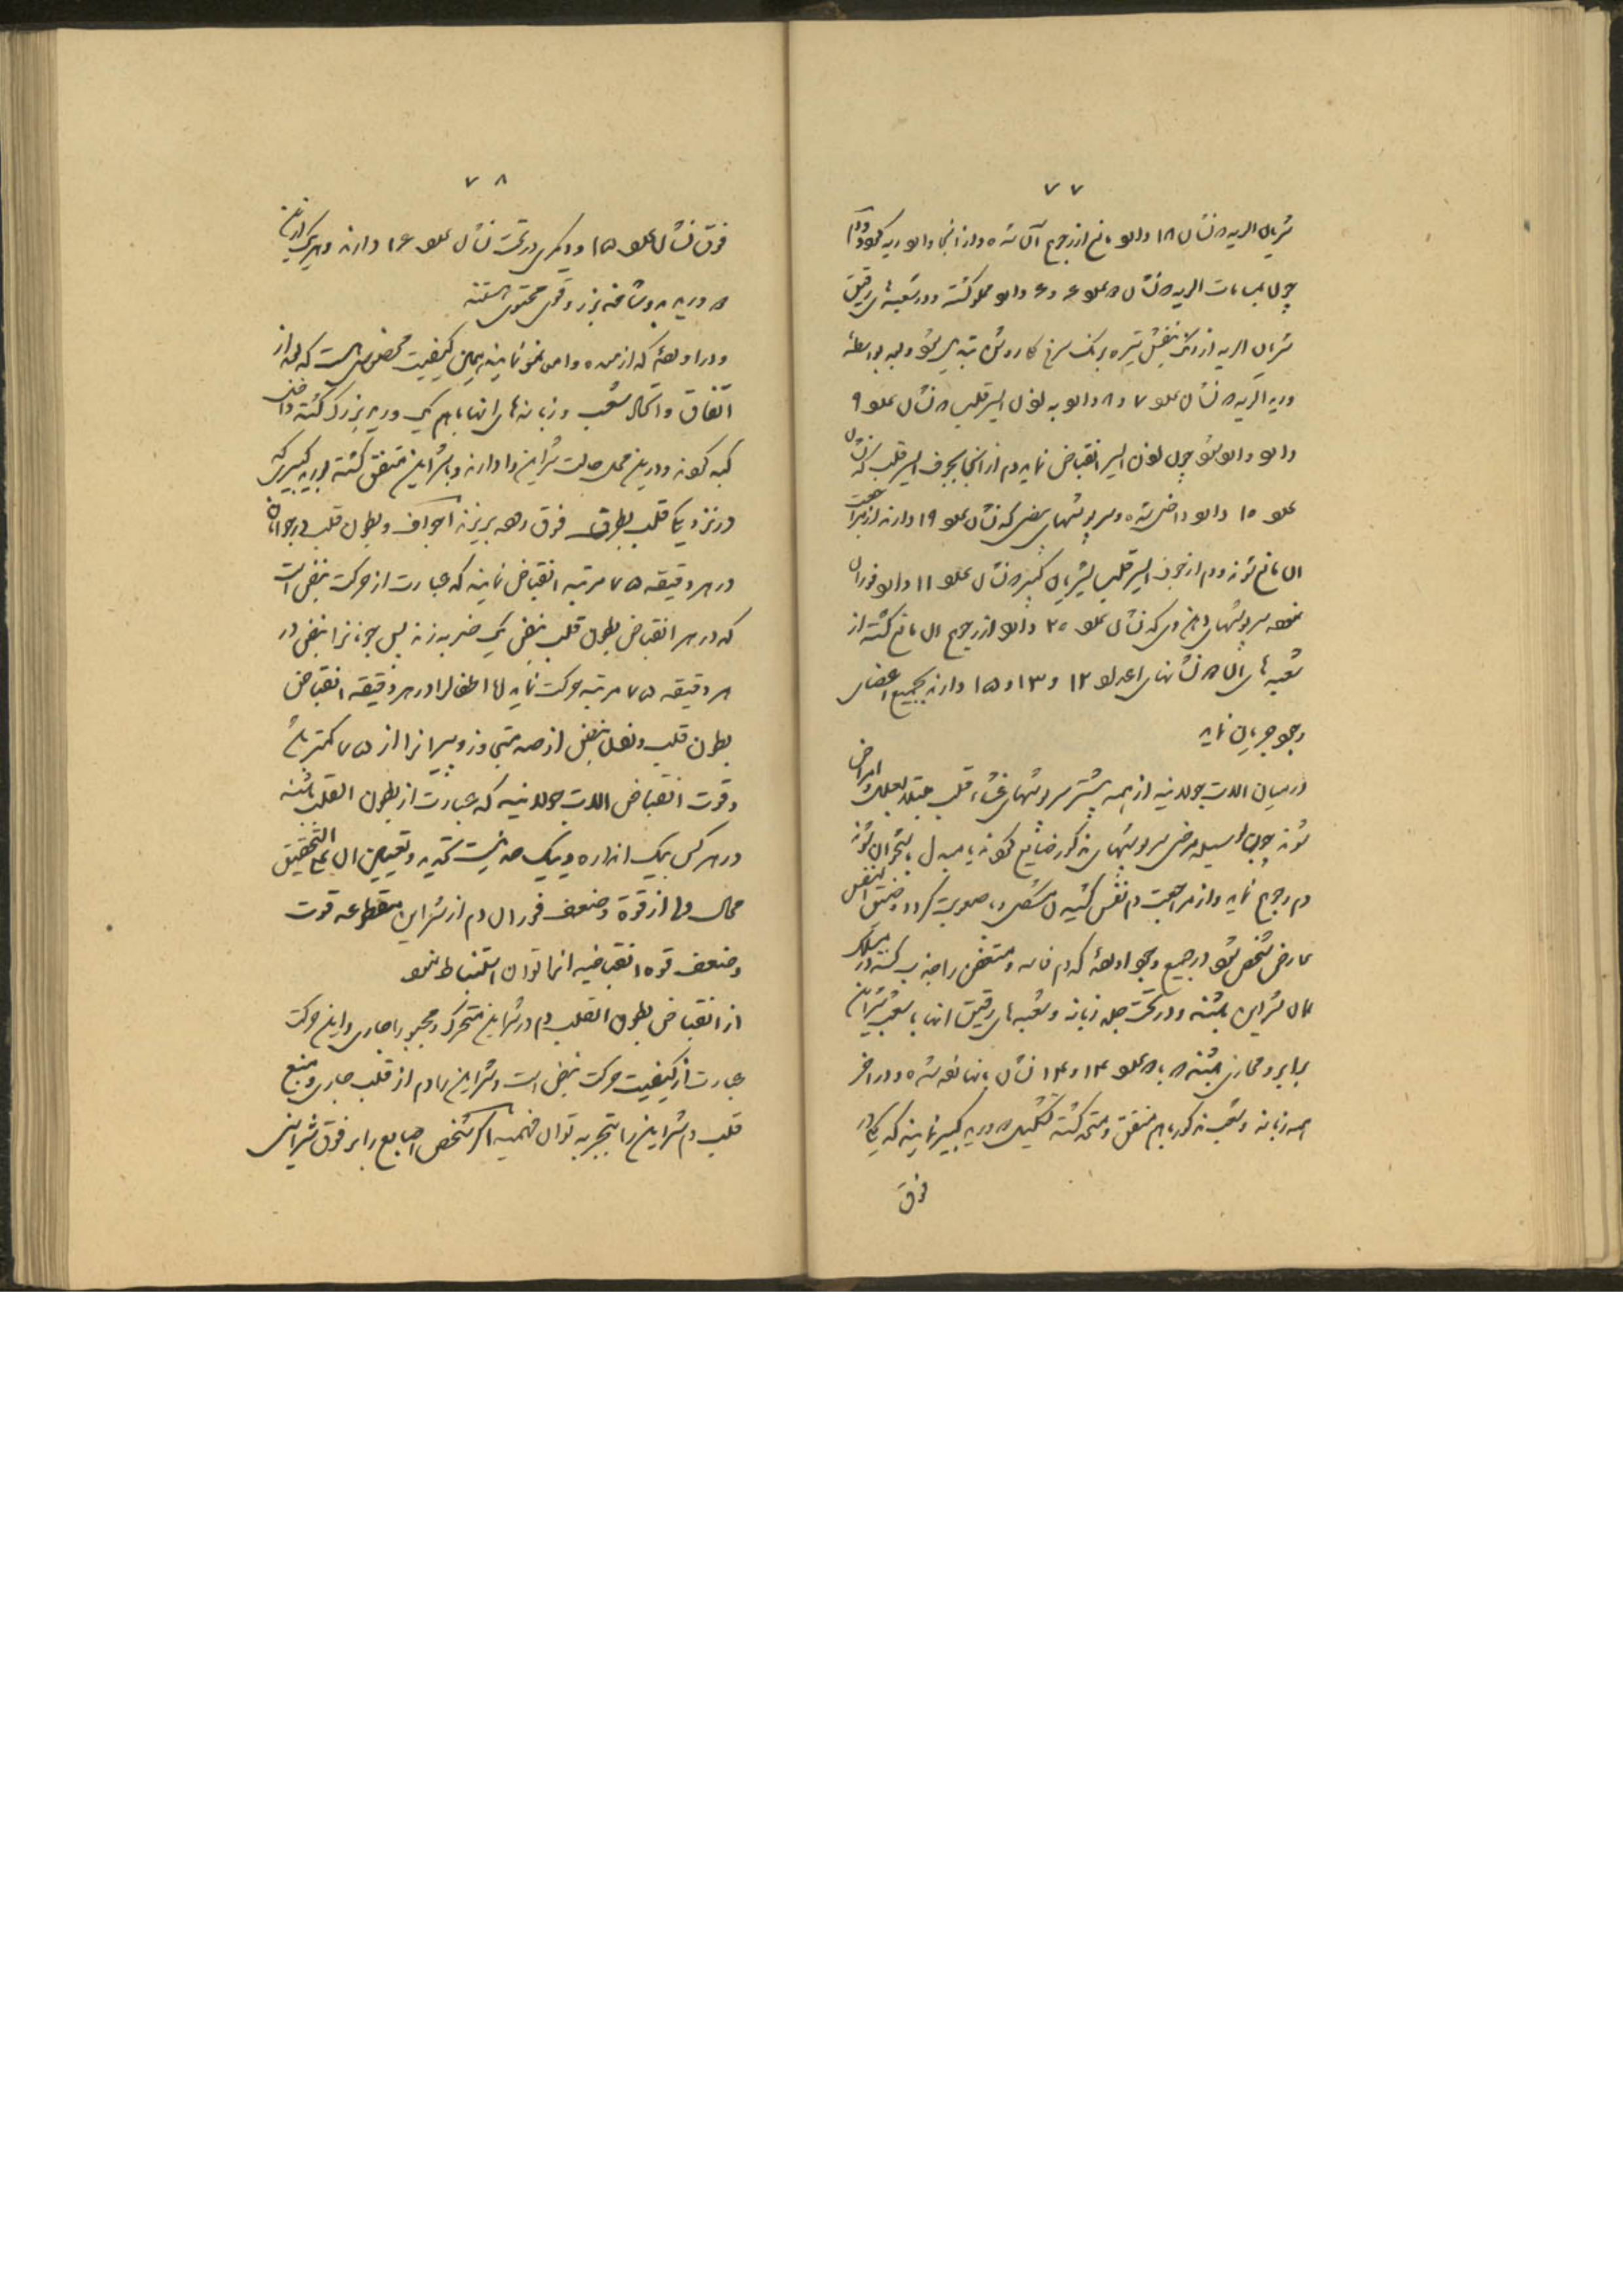 ۷۷
شریان الریه که نشان ۱۸ دارد مانع از رجوع آن شده و از آنجا داخل ریه گردد و دم
چون بمسامات الریه که نشان عدد ۶ و ۶ دارد مملو گشته و در شعبه های رقیق
شریان الریه از رنگ بنفش تیره برنگ سرخ کاروشن تبدیل شود و بواسطه
ورید الریه که نشان عدد ۷ و ۸ دارد به اذن ایسر قلب که نشان عدد ۹
دارد وارد شود چون اذن ایسر انقباض نماید دم از آنجا بجوف ایسر قلب که نشان
عدد ۱۰ دارد داخل شده و سرپوشهای بیضی که نشان عدد ۱۹ دارند از مراجعت
آن مانع شوند و دم از جوف ایسر قلب بشریان کبیر که نشان عدد ۱۱ دارد فوران
نموده سرپوشهای که نشان عدد ۲۰ دارد از رجوع آن مانع گشته از
شعبه های آن که نشانهای اعداد ۱۲ و ۱۳ و ۱۵ دارند بجمیع اعضای
وجود جریان نماید
در میان آلات جولدنیه از همه بیشتر سرپوشهای غشاء قلب مبتلا بعلل و امراض
شوند چون بوسیله مرض سرپوشهای مذکور ضایع گردند یا مبدل باستخوان شوند
دم رجوع نماید و از مراجعت دم نفس کشیدن مشکل و با صعوبت گردد و ضیق النفس
عارض شخص شود در جمیع وجود اورده که دم فاسد و متعفن را جذب کنند در مسلک
همان شراین باشند و در تحت جلد زبانه و شعبه های رقیق آنها با شعب شراین
برابر و محاذی باشند که با عدد ۱۳ و ۱۴ نشان بآنها نموده شده و در آخر
همه زبانه و شعب مذکور با هم متفق و متحد گشته تشکیل دو ورید کبیر نمایند که یکی در
فوق
۷۸
فوق نشان عدد ۱۵ و دیگری در تحت نشان عدد ۱۶ دارند و هر یک از این
دو ورید بدو شاخه بزرگ و قوی محتوی هستند
و در اورده که از معده و امعا نمو نمایند همین کیفیت مخصوص است که بعد از
اتفاق و اتحاد شعب و زبانه های آنها با هم یک ورید بزرگ گشته داخل
کبد گردند و در این محل حالت شراین را دارند و با شراین متفق گشته بورید کبیر که
در نزدیک قلب بطرف فوق رود بریزند اجواف و بطون قلب در جوانان
در هر دقیقه ۷۵ مرتبه انقباض نمایند که عبارت از حرکت نبض است
که در هر انقباض بطون قلب نبض یک ضربه زند پس جوانانرا نبض در
هر دقیقه ۷۵ مرتبه حرکت نماید اما اطفال را در هر دقیقه انقباض
بطون قلب و نبض از صد متجاوز و پیرانرا از ۷۵ کمتر باشد
و قوت انقباض آلات جولدنیه که عبارت از بطون القلب باشند
در هر کس بیک اندازه و بیک حد نیست تحدید و تعیین آن علی التحقیق
محال اما از قوة و ضعف فوران دم از شراین مقطوعه قوت
و ضعف قوه انقباضیه آنها توان استنباط نمود
از انقباض بطون القلب دم در شراین متحرک و مجبور با جاری و این حرکت
عبارت از کیفیت حرکت نبض است و شراین را دم از قلب جاری و منبع
قلب دم شراین را بتجربه توان فهمید اگر شخص اصابع را بر فوق شراینی